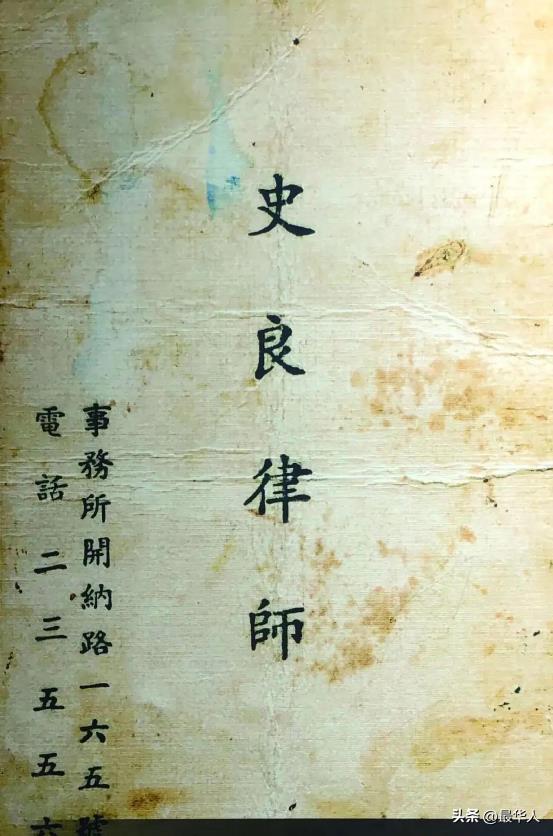 史良律師
事務所開納路一六五號
電話二三五五六
头条 @最华人